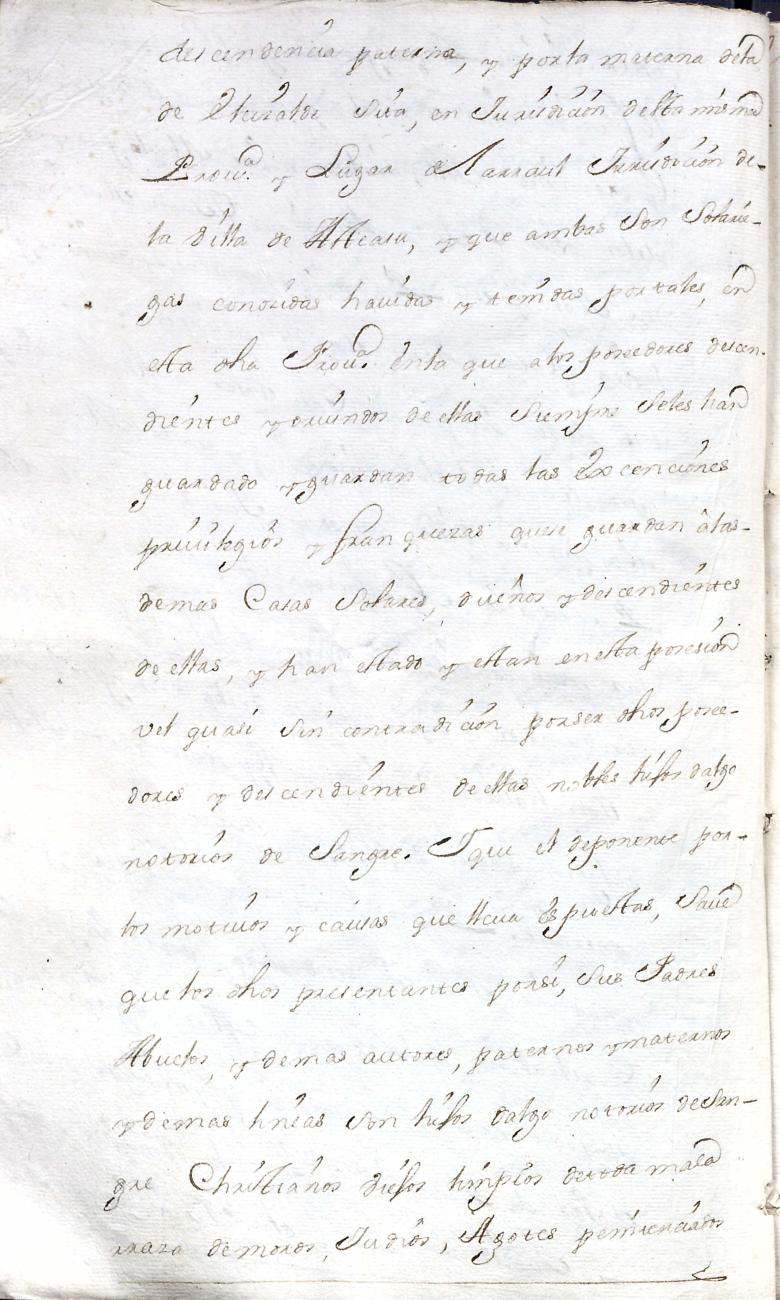 descendencia paterna, y por la materna dela
de Sita, en Jurisdicion de esta misma
Prov.ª y Lugar de Larraul Jurisdicion de-
la Villa de Asteasu, y que ambas son Solarie-
gas conozidas havidas y tenidas por tales, en
esta dha Prov.ª en la que a los poseedores descen-
dientes y oriundos de ellas siempre seles han
guardado y guardan todas las Excenciones
privilegios y franquezas que se guardan â las-
demas Casas Solares, dueños y descendientes
de ellas, y han estado y estan en esta posesion
vel quasi sin contradicion por ser dhos posee-
dores y descendientes de ellas nobles hijos dalgo
notorios de Sangre. Y que el deponente por-
los motivos y causas que lleva Espuestas, Save
que los dhos presentantes por si, sus Padres
Abuelos, y demas autores, paternos y maternos
y demas lineas son hijos dalgo notorios de San-
gre Christianos viejos limpios de toda mala
rraza de moros, Judios, Agotes penitenciados